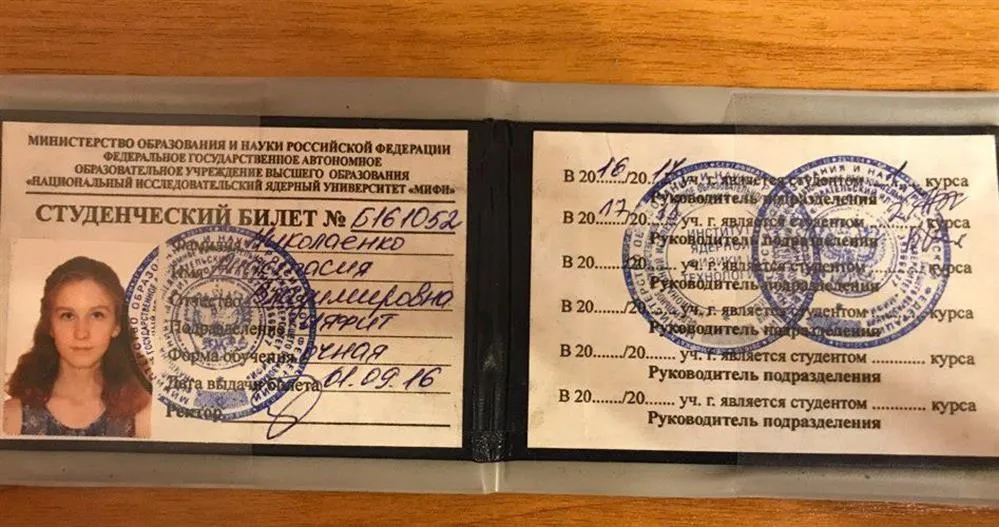 МИНИСТЕРСТВО ОБРАЗОВАНИЯ И НАУКИ РОССИЙСКОЙ ФЕДЕРАЦИИ
ФЕДЕРАЛЬНОЕ ГОСУДАРСТВЕННОЕ АВТОНОМНОЕ
ОБРАЗОВАТЕЛЬНОЕ УЧРЕЖДЕНИЕ ВЫСШЕГО ОБРАЗОВАНИЯ
«НАЦИОНАЛЬНЫЙ ИССЛЕДОВАТЕЛЬСКИЙ ЯДЕРНЫЙ УНИВЕРСИТЕТ «МИФИ»
СТУДЕНЧЕСКИЙ БИЛЕТ № Б161052
Фамилия Николаенко
Имя Анастасия
Отчество Владимировна
Подразделение ИЯФИТ
Форма обучения очная
Дата выдачи билета 01.09.16
Ректор
В 2016/2017 уч. г. является студентом 1 курса
Руководитель подразделения
В 2017/20 уч. г. является студентом курса
Руководитель подразделения
В 20......./20....... уч. г. является студентом курса
Руководитель подразделения
В 20......./20....... уч. г. является студентом ............ курса
Руководитель подразделения
В 20......./20....... уч. г. является студентом ............ курса
Руководитель подразделения
В 20......./20....... уч. г. является студентом ............ курса
Руководитель подразделения
ИНСТИТУТ
ЯДЕРНОЙ
ФИЗИКИ И
ТЕХНОЛОГИЙ